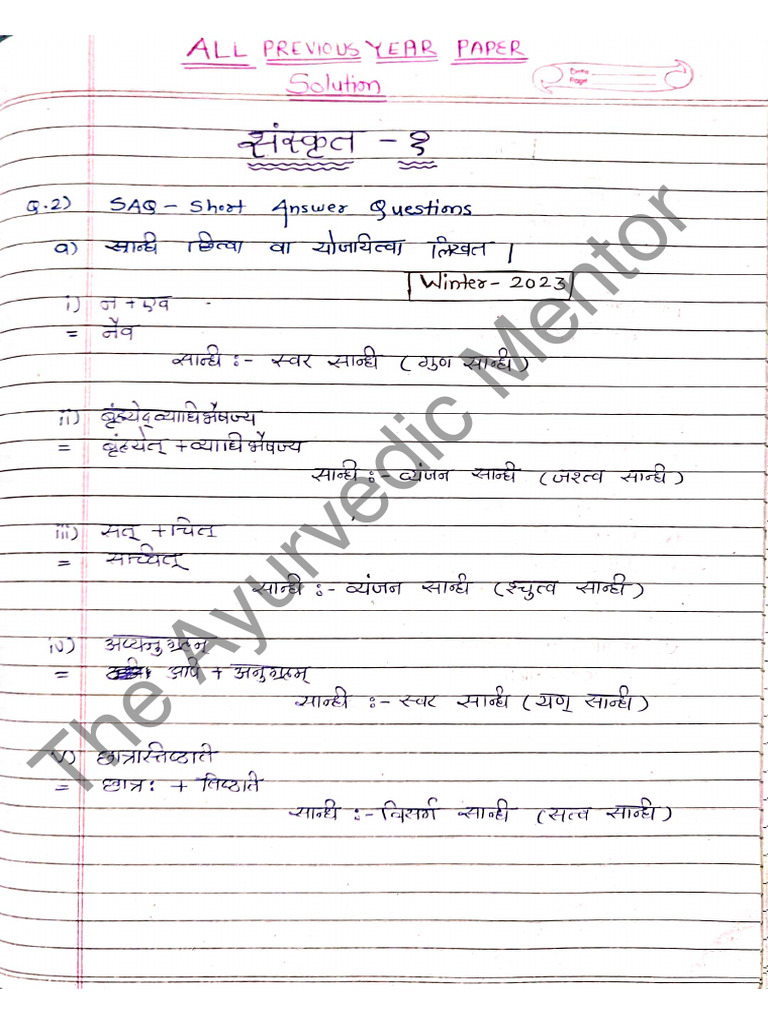 ALL PREVIOUS YEAR PAPER
Solution
Date
Page
संस्कृत - १
Q.2) SAQ - Short Answer Questions
a) सान्धी छित्वा वा योजायित्वा लिखत |
Winter - 2023
i) न + एव
= नैव
सान्धी :- स्वर सान्धी ( गुण सान्धी )
ii) बृंहयेद्व्याधिभैषज्य
= बृंहयेत् + व्याधिभैषज्य
सान्धी :- व्यंजन सान्धी (जशत्व सान्धी )
iii) सत् + चित्
= सच्चित्
सान्धी :- व्यंजन सान्धी (श्चुत्व सान्धी )
iv) अप्यनुग्रहम्
= अपि + अनुग्रहम्
सान्धी :- स्वर सान्धी ( यण् सान्धी )
v) छात्रास्तिष्ठाते
= छात्र: + तिष्ठाते
सान्धी :- विसर्ग सान्धी (सत्व सान्धी )
The Ayurvedic Mentor